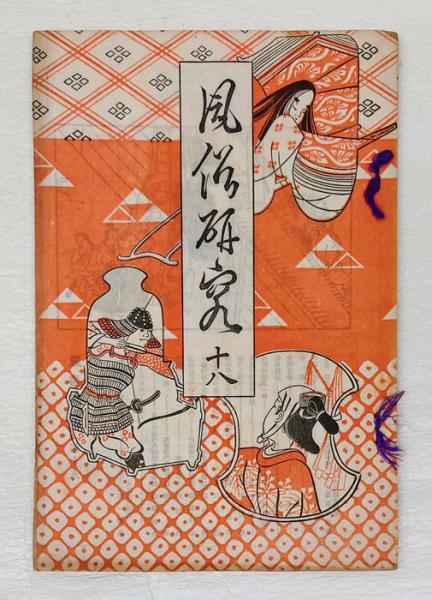 風俗研究
十八